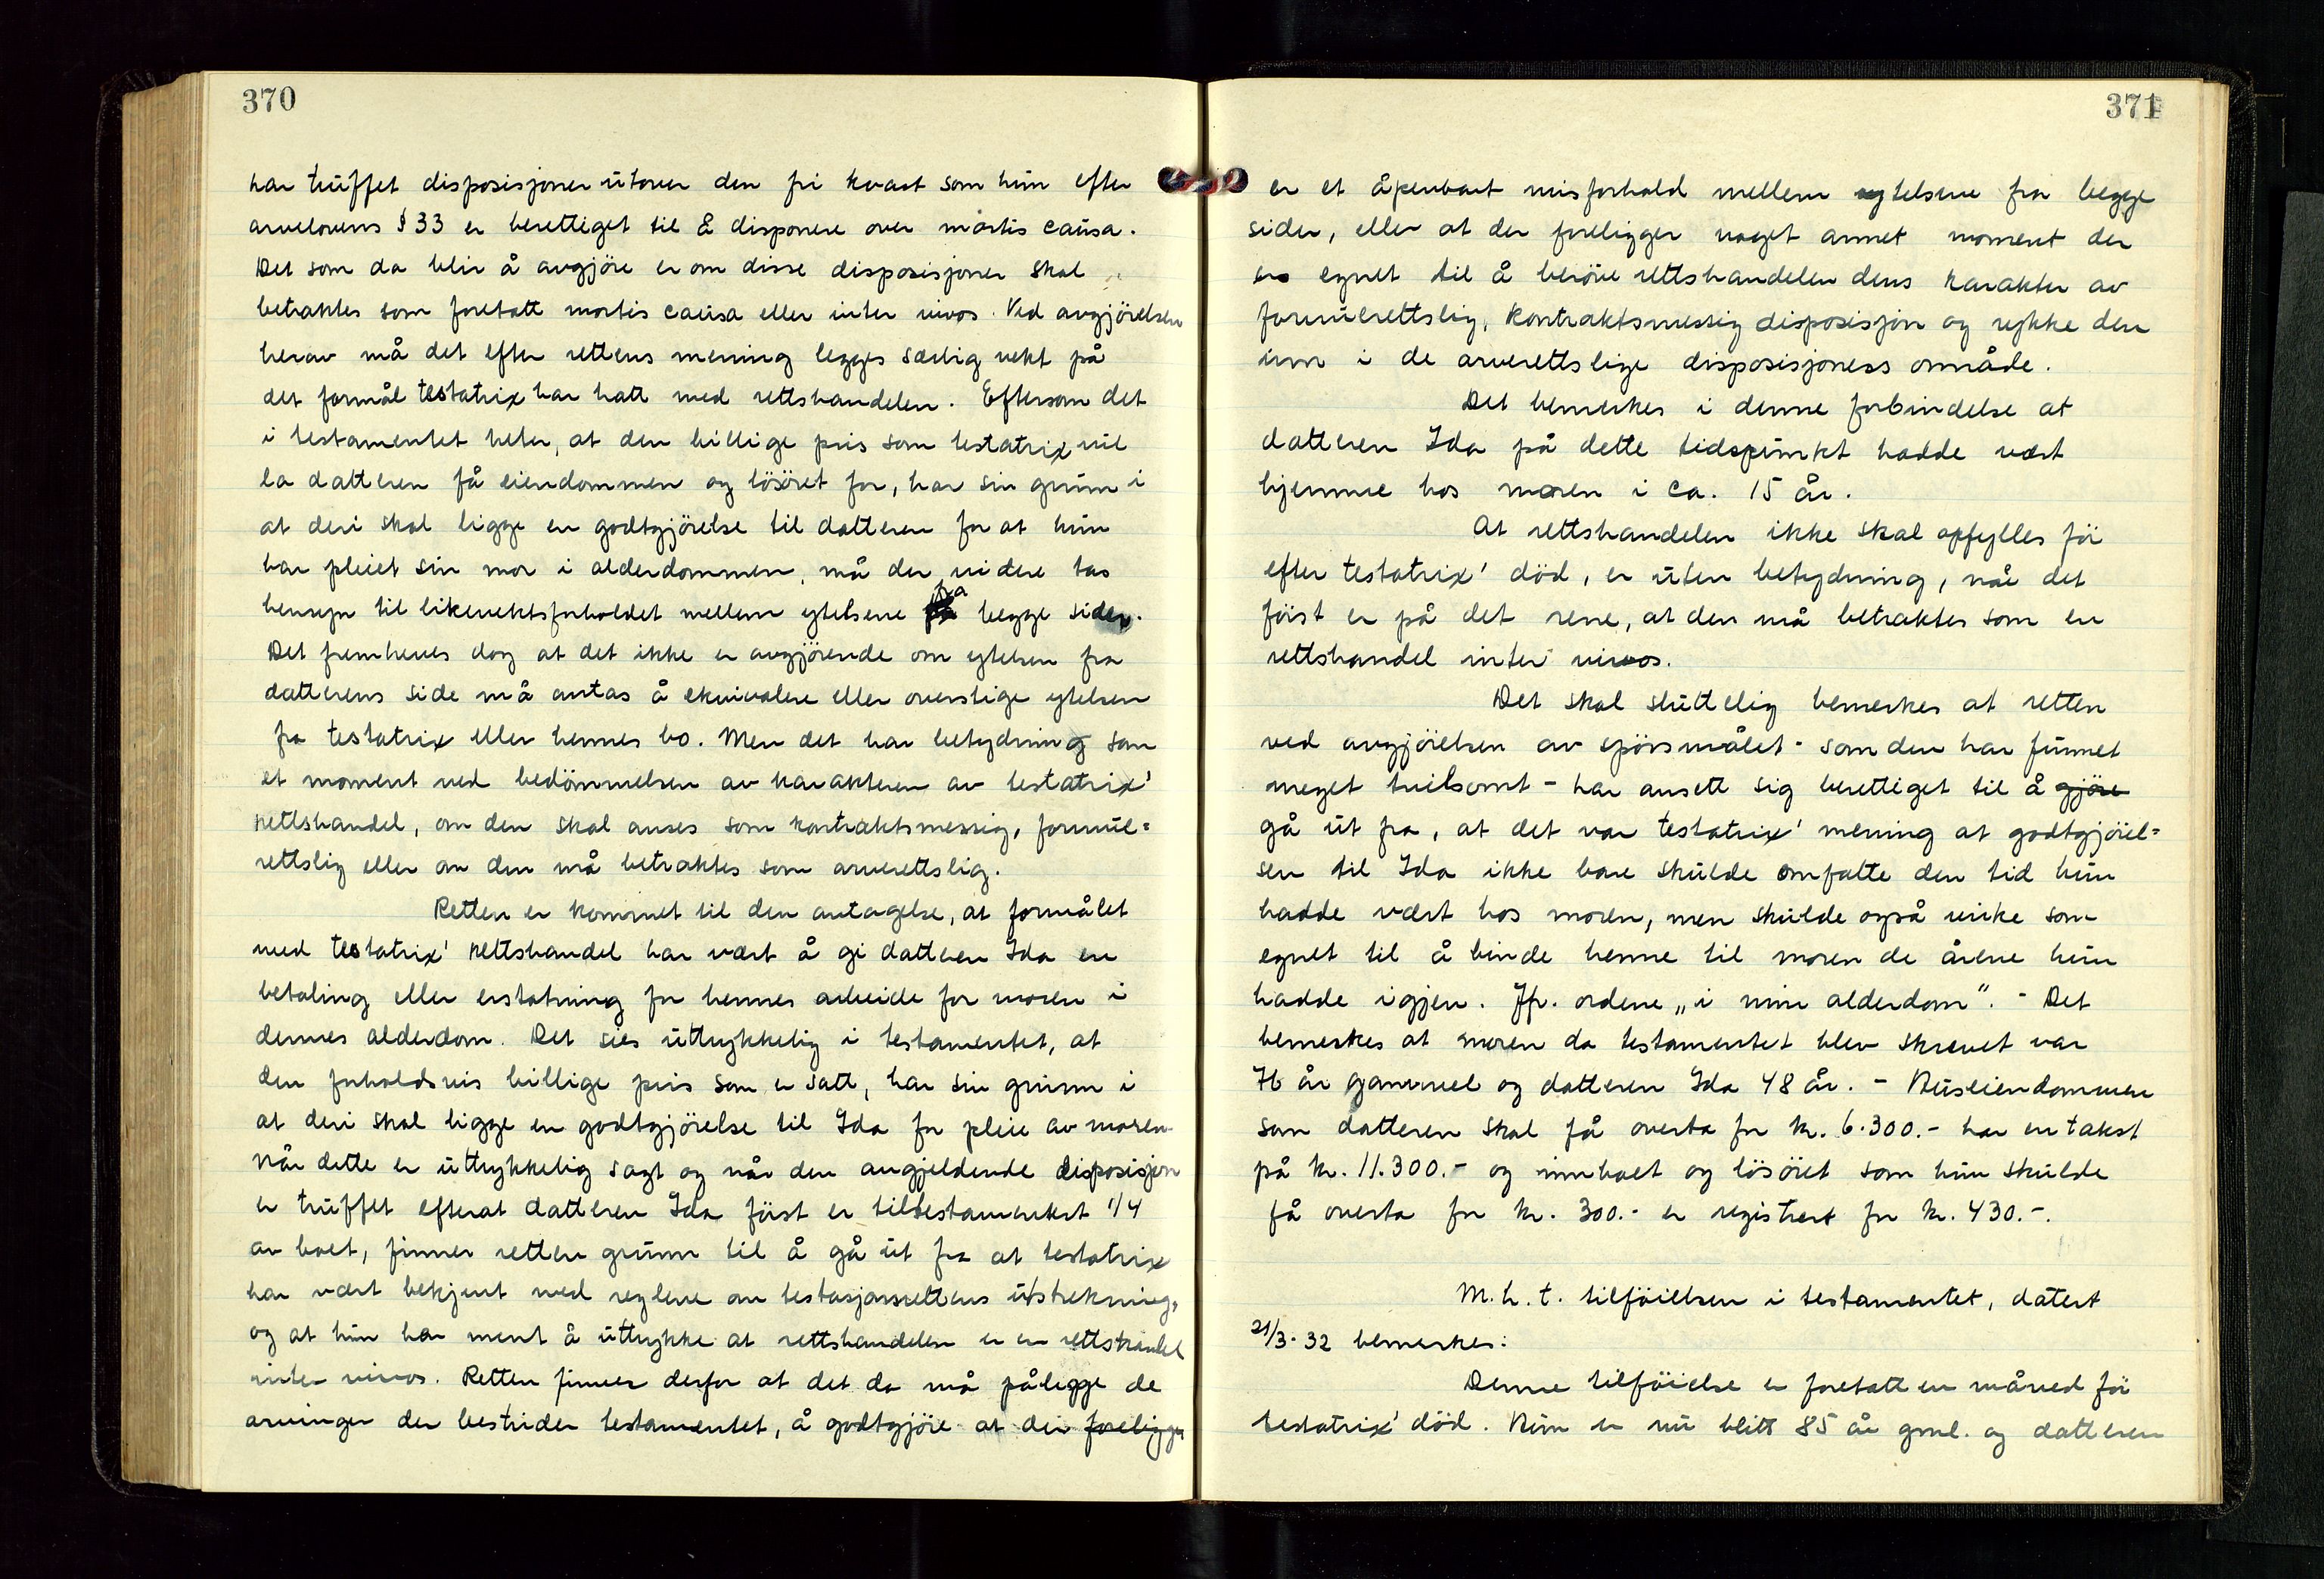 370
har truffet disposisjoner utover den fri kvart som hun efter
arvelovens § 33 er berettiget til å disponere over mortis causa.
Det som da blir å avgjöre er om disse disposisjoner skal
betraktes som foretatt mortis causa eller inter vivos. Ved avgjörelsen
herav må det efter rettens mening legges særlig vekt på
det formål testatrix har hatt med rettshandelen. Eftersom det
i testamentet heter, at den billige pris som testatrix vil
la datteren få eiendommen og lösöret for, har sin grunn i
at deri skal ligge en godtgjörelse til datteren for at hun
har pleiet sin mor i alderdommen, må der videre tas
hensyn til likevektsforholdet mellem ytelsene fra begge sider.
Det fremheves dog at det ikke er avgjörende om ytelsen fra
datterens side må antas å ekvivalere eller overstige ytelsen
fra testatrix eller hennes bo. Men det har betydning som
et moment ved bedömmelsen av karakteren av testatrix'
rettshandel, om den skal anses som kontraktsmessig, formue=
rettslig eller om den må betraktes som arverettslig.
Retten er kommet til den antagelse, at formålet
med testatrix' rettshandel har vært å gi datteren Ida en
betaling eller erstatning for hennes arbeide for moren i
dennes alderdom. Det sies uttrykkelig i testamentet, at
den forholdsvis billige pris som er satt, har sin grunn i
at deri skal ligge en godtgjörelse til Ida for pleie av moren.
Når dette er uttrykkelig sagt og når den angjeldende disposisjon
er truffet efterat datteren Ida först er tiltestamentert 1/4
av boet, finner retten grunn til å gå ut fra at testatrix
har vært bekjent med reglene om testasjonsrettens utstrekning,
og at hun har ment å uttrykke at rettshandelen er en rettshandel
inter vivos. Retten finner derfor at det da må pålegge de
arvinger der bestrider testamentet, å godtgjöre at der foreligger
371
er et åpenbart misforhold mellem ytelsene fra begge
sider, eller at der foreligger noget annet moment der
er egnet til å beröve rettshandelen dens karakter av
formuerettslig, kontraktsmessig disposisjon og rykke den
inn i de arverettslige disposisjoners område.
Det bemerkes i denne forbindelse at
datteren Ida på dette tidspunkt hadde vært
hjemme hos moren i ca. 15 år.
At rettshandelen ikke skal opfylles för
efter testatrix' död, er uten betydning, når det
först er på det rene, at den må betraktes som en
rettshandel inter vivos.
Det skal sluttelig bemerkes at retten
ved avgjörelsen av spörsmålet - som den har funnet
meget tvilsomt - har ansett sig berettiget til å gjöre
gå ut fra, at det var testatrix' mening at godtgjörel=
sen til Ida ikke bare skulde omfatte den tid hun
hadde vært hos moren, men skulde også virke som
egnet til å binde henne til moren de årene hun
hadde igjen. Jfr. ordene „i min alderdom". - Det
bemerkes at moren da testamentet blev skrevet var
76 år gammel og datteren Ida 48 år. - Huseiendommen
som datteren skal få overta for kr. 6.300.- har en takst
på kr. 11.300.- og innboet og lösöret som hun skulde
få overta for kr. 300.- er registrert for kr. 430.-.
M.h.t. tilföielsen i testamentet, datert
21/3-32 bemerkes:
Denne tilföielse er foretatt en måned för
testatrix' död. Hun er nu blitt 85 år gml. og datteren